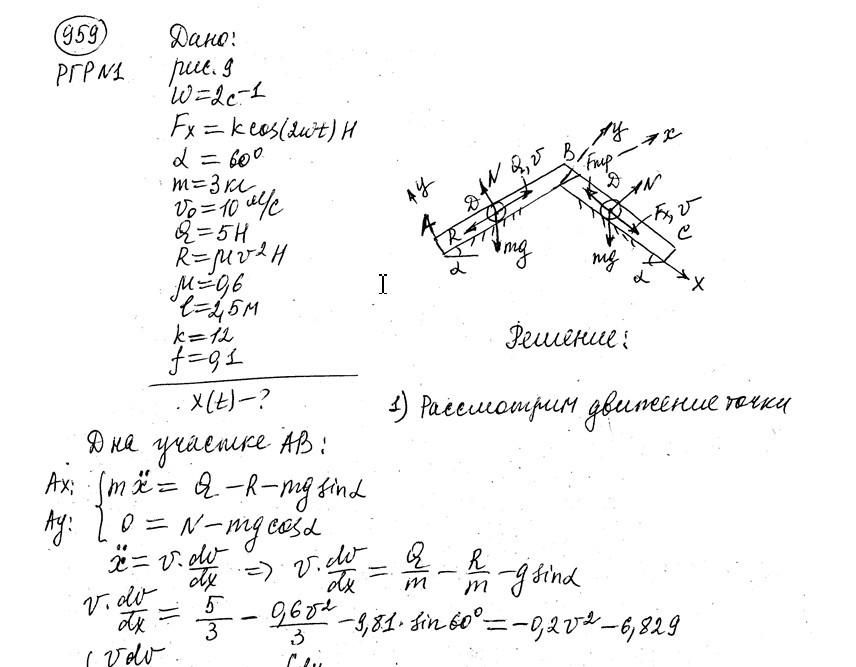 959
РГР N1
Дано:
рис. 9
W=2c-1
Fx = k cos(2wt) H
α = 60°
m=3кг
v₀=10 м/с
Q=5H
R=μv² H
μ=0,6
l=2,5м
k=12
f=0,1
x(t)-?
y
A
R
D
N
Q, v
B
mg
α
y
x
Fтр
D
N
Fx, v
C
mg
α
x
Решение:
1) Рассмотрим движение точки
D на участке AB:
Ax: { mẍ = Q - R - mg sinα
Ay: { 0 = N - mg cosα
ẍ = v·dv/dx => v·dv/dx = Q/m - R/m - g sinα
v·dv/dx = 5/3 - 0,6v²/3 - 9,81·sin60° = -0,2v² - 6,829
vdv